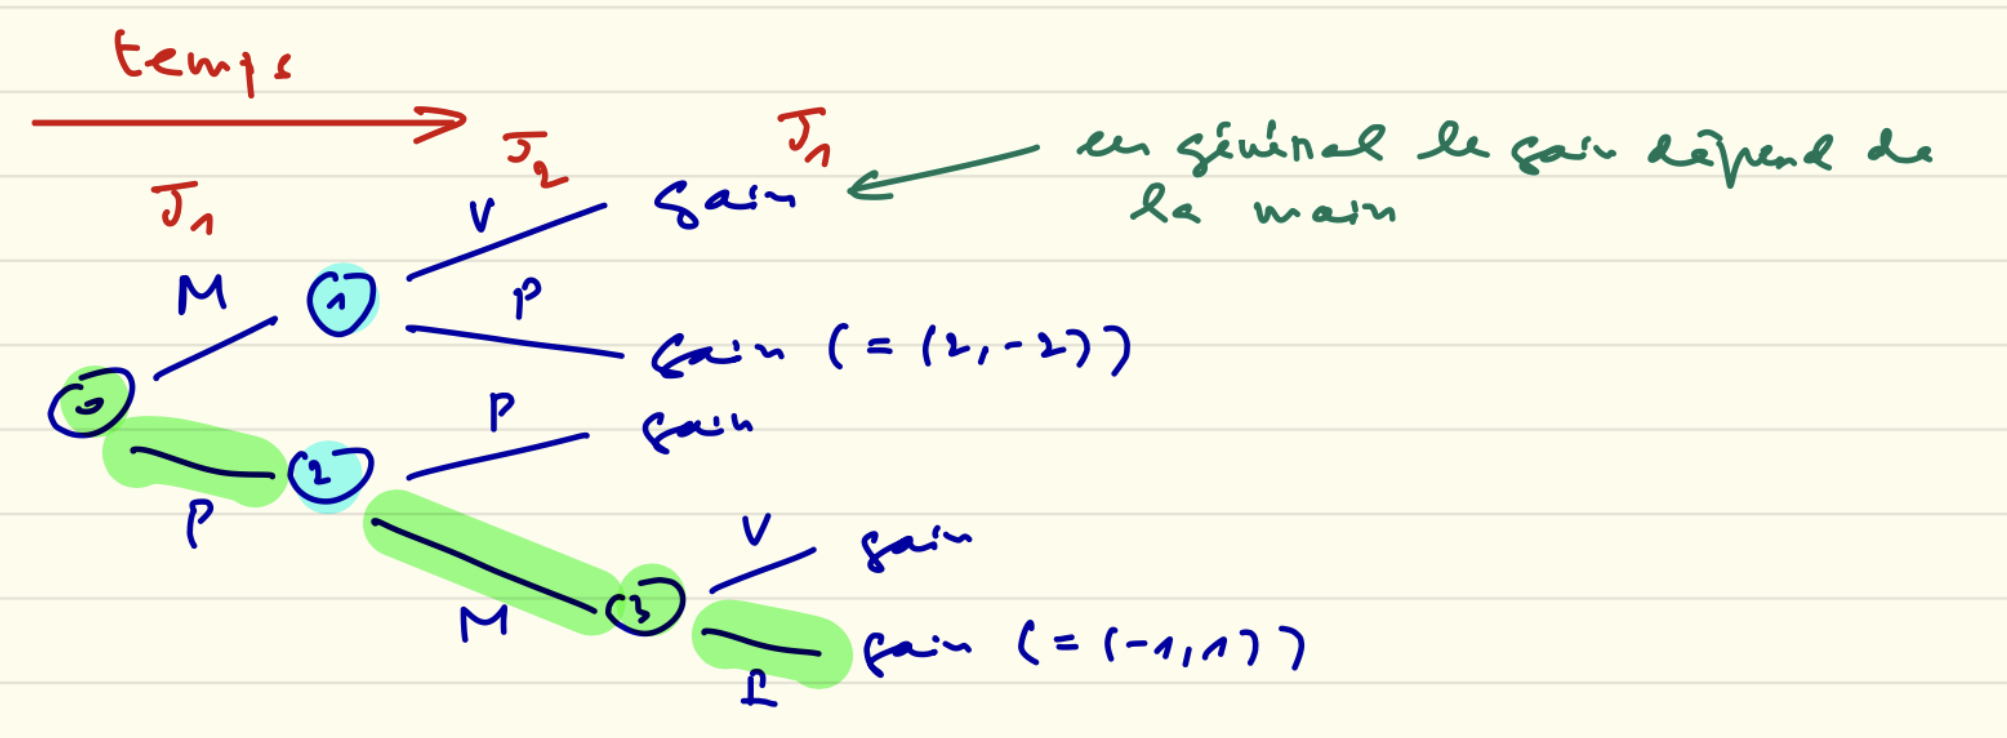 temps
J2
J1
en général le gain dépend de
la main
J1
V
gain
M
1
P
gain (= (2, -2))
0
P
gain
2
P
V
gain
M
3
gain (= (-1, 1))
P